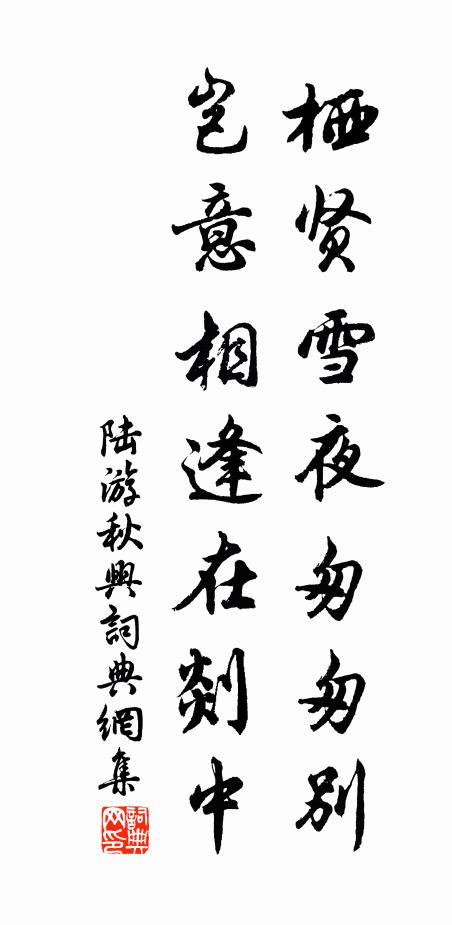 栖贤雪夜匆匆别
岂意相逢在剡中
陆游秋興詞典網集
詞典
网印